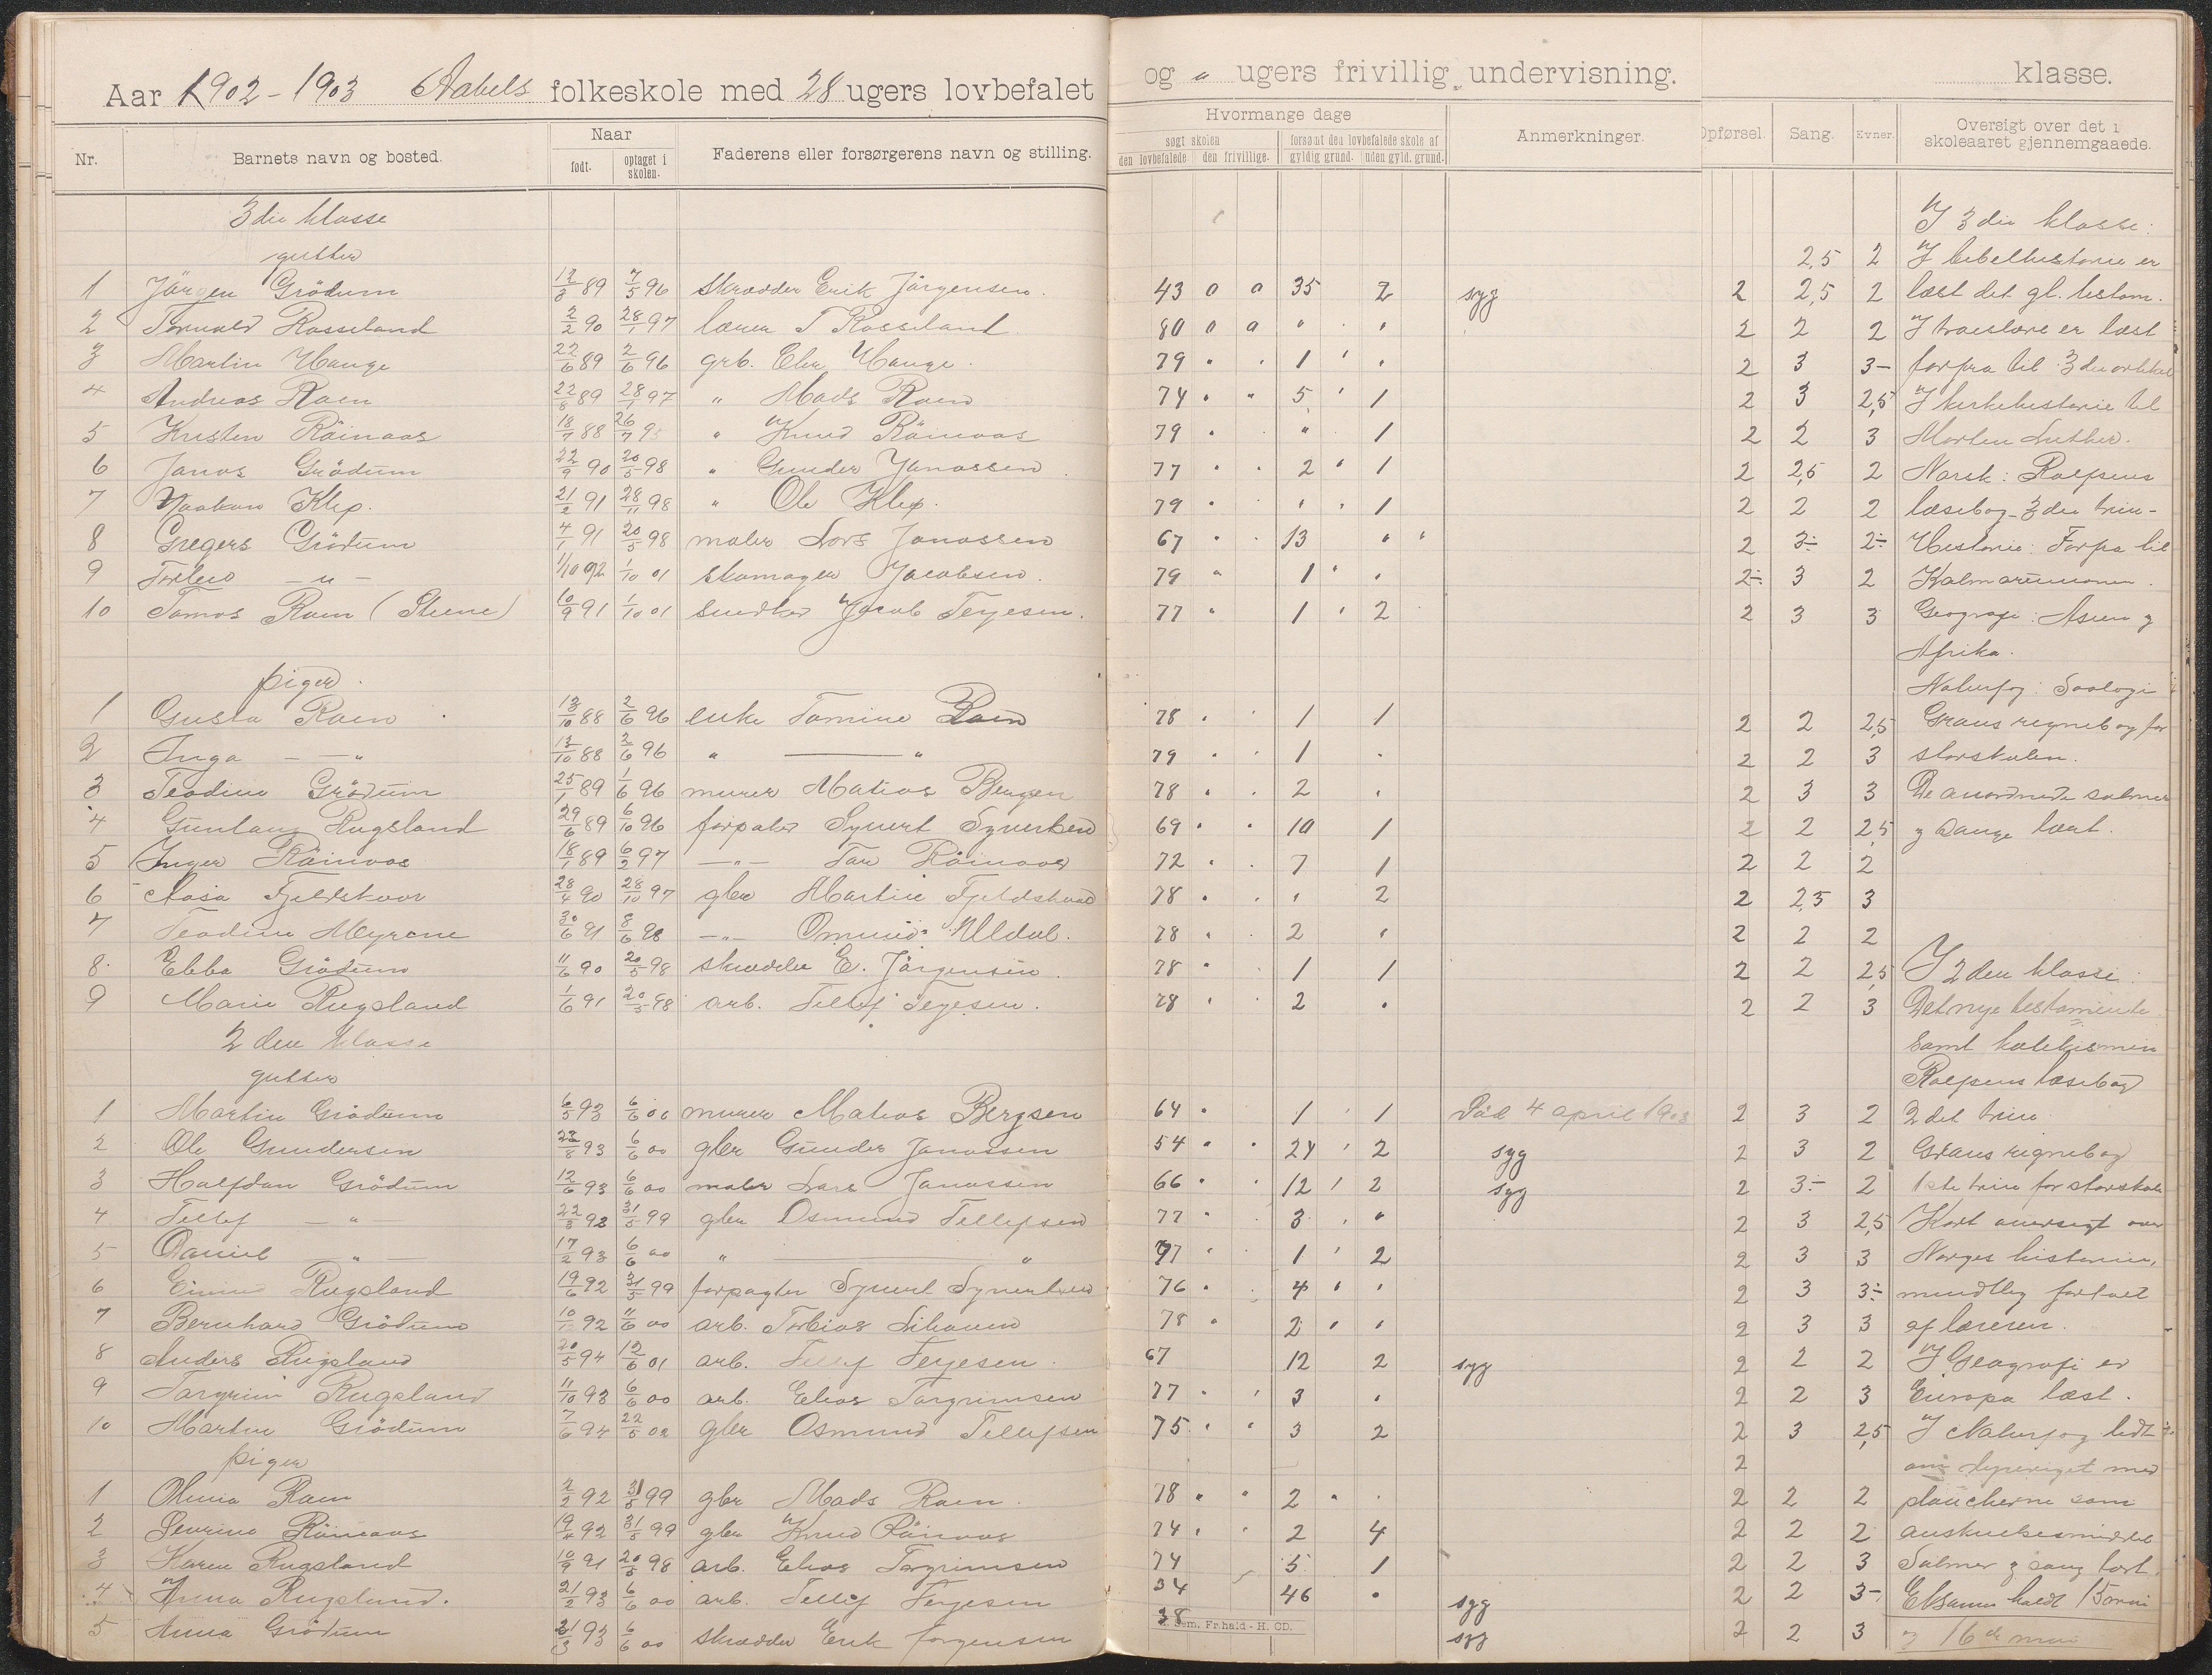 Aar 1902-1903 Aabels folkeskole med 28 ugers lovbefalet og " ugers frivillig undervisning. klasse.
Nr. Barnets navn og bosted. Naar født. optaget i skolen. Faderens eller forsørgerens navn og stilling. Hvormange dage søgt skolen den lovbefalede. den frivillige. forsømt den lovbefalede skole af gyldig grund. uden gyld. grund. Anmerkninger. Opførsel. Sang. Evner. Oversigt over det i skoleaaret gjennemgaaede.
3die klasse I 3die klasse:
gutter 2,5 2 I bibelhistorie er
1 Jörgen Grödum 12/3 89 7/5 96 Skrædder Erik Jörgensen. 43 0 0 35 2 syg 2 2,5 2 læst det gl. testam.
2 Torvald Rosseland 2/2 90 28/1 97 lærer T Rosseland 80 0 0 " " 2 2 2 I troeslære er læst
3 Martin Hauge 22/6 89 2/6 96 grb. Elen Hauge. 79 " " 1 " " 2 3 3- forfra til 3die artikel
4 Andreas Roen 22/8 89 28/1 97 " Mads Roen 74 " " 5 " 1 2 3 2,5 I kirkehistorie til
5 Kristen Röinaas 18/7 88 26/7 95 " Knud Röinaas 79 " " " 1 2 2 3 Morten Luther.
6 Janas Grödum 22/9 90 20/5 98 " Gunder Janassen 77 " " 2 " 1 2 2,5 2 Norsk: Rolfsens
7 Haakon Klep. 21/2 91 28/11 98 " Ole Klep. 79 " " " 1 2 2 2 læsebog 3die trin-
8 Gregers Grödum 4/1 91 20/5 98 maler Lars Janassen 67 " " 13 " " 2 3÷ 2÷ Historie: Forfra til
9 Torleiv - " - 1/10 92 1/10 01 skomager Jacobsen. 79 " 1 " " 2÷ 3 2 Kalmarunionen.
10 Tomas Roen (Steene) 10/9 91 1/10 01 snedker Jacob Terjesen. 77 " 1 " 2 2 3 3 Geografi: Asien og
Afrika.
piger. Naturfog: Soologi
1 Gusta Roen 13/10 88 2/6 96 enke Tomine Roen 78 " " 1 1 2 2 2,5 Grans regnebog for
2 Inga - " 13/10 88 2/6 96 " — " 79 " " 1 " 2 2 3 storskolen.
3 Teodine Grödum 25/1 89 1/6 96 murer Matias Bergsen 78 " " 2 " 2 3 3 De anordnede salmer
4 Guntaug Rugsland 29/6 89 6/10 96 forpakter Syvert Syvertsen 69 " " 10 1 2 2 2,5 og sange lært.
5 Inger Röinaas 18/1 89 6/2 97 - " - Tar Röinaas 72 " " 7 1 2 2 2
6 Aasa Fjeldskaar 28/4 90 28/10 97 gbr Martin Fjeldskaar 78 " " " 2 2 2,5 3
7 Teodine Myrene 30/6 91 8/6 98 - " - Omund Uldal. 78 " " 2 " 2 2 2
8. Ebba Grödum 11/6 90 20/5 98 skrædder E. Jörgensen 78 " " 1 1 2 2 2,5 I 2den klasse:
9 Marie Rugsland 1/6 91 20/5 98 arb. Tellef Terjesen. 78 " " 2 " 2 2 3 Det nye testamente
2den klasse samt katekismen
gutter Rolfsens læsebog
1 Martin Grödum 6/5 93 6/6 00 murer Matias Bergsen 64 " 1 " 1 Död 4 april 1903 2 3 2 2det trin
2 Ole Gundersen 28/8 93 6/6 00 gbr Gunder Janassen 54 " " 24 " 2 syg 2 3 2 Grans regnebog
3 Halfdan Grödum 12/6 93 6/6 00 maler Lars Janassen 66 " " 12 " 2 syg 2 3÷ 2 1ste trin for storskole
4 Tellef - " - 22/3 92 31/5 99 gbr Osmund Tellefsen 77 " 3 " " 2 3 2,5 Kort oversigt over
5 Daniel - " - 17/2 93 6/6 00 " — " 77 " " 1 " 2 2 3 3 Norges historie,
6 Einar Rugsland 19/6 92 31/5 99 forpagter Syvert Syvertsen 76 " " 4 " " 2 3 3÷ mundtlig fortalt
7 Bernhard Grödum 10/12 92 11/6 00 arb. Torbias Liknen 78 " 2 " " 2 3 3 af læreren.
8 Anders Rugsland 20/5 94 12/6 01 arb. Tellef Terjesen. 67 12 2 syg 2 2 2 I Geografi er
9 Torgrim Rugsland 11/10 93 6/6 00 arb. Elias Torgrimsen 77 " " 3 " 2 2 3 Europa læst.
10 Martin Grödum 7/6 94 22/5 02 gbr Osmund Tellefsen 75 " " 3 2 2 3 2,5 I Naturfog lidt
piger 2 om dyreriget med
1 Olivia Roen 2/2 92 31/5 99 gbr Mads Roen. 78 " " 2 " " 2 2 2 plancherne som
2 Severine Röinaas 19/4 92 31/5 99 gbr Knud Röinaas 74 " " 2 4 2 2 2 anskuelsesmiddel
3 Karen Rugsland 10/9 91 20/5 98 arb. Elias Torgrimsen 74 5 1 2 2 3 Salmer og sang lært.
4 Anna Rugsland. 21/2 93 6/6 00 arb. Tellef Terjesen 34 46 " syg 2 2 3- Eksamen holdt 15 mai
5 Anna Grödum 21/3 93 6/6 00 skrædder Erik Jorgensen 38 syg 2 2 3 og 16de mai
Sem, Fr.hald - H. CD.